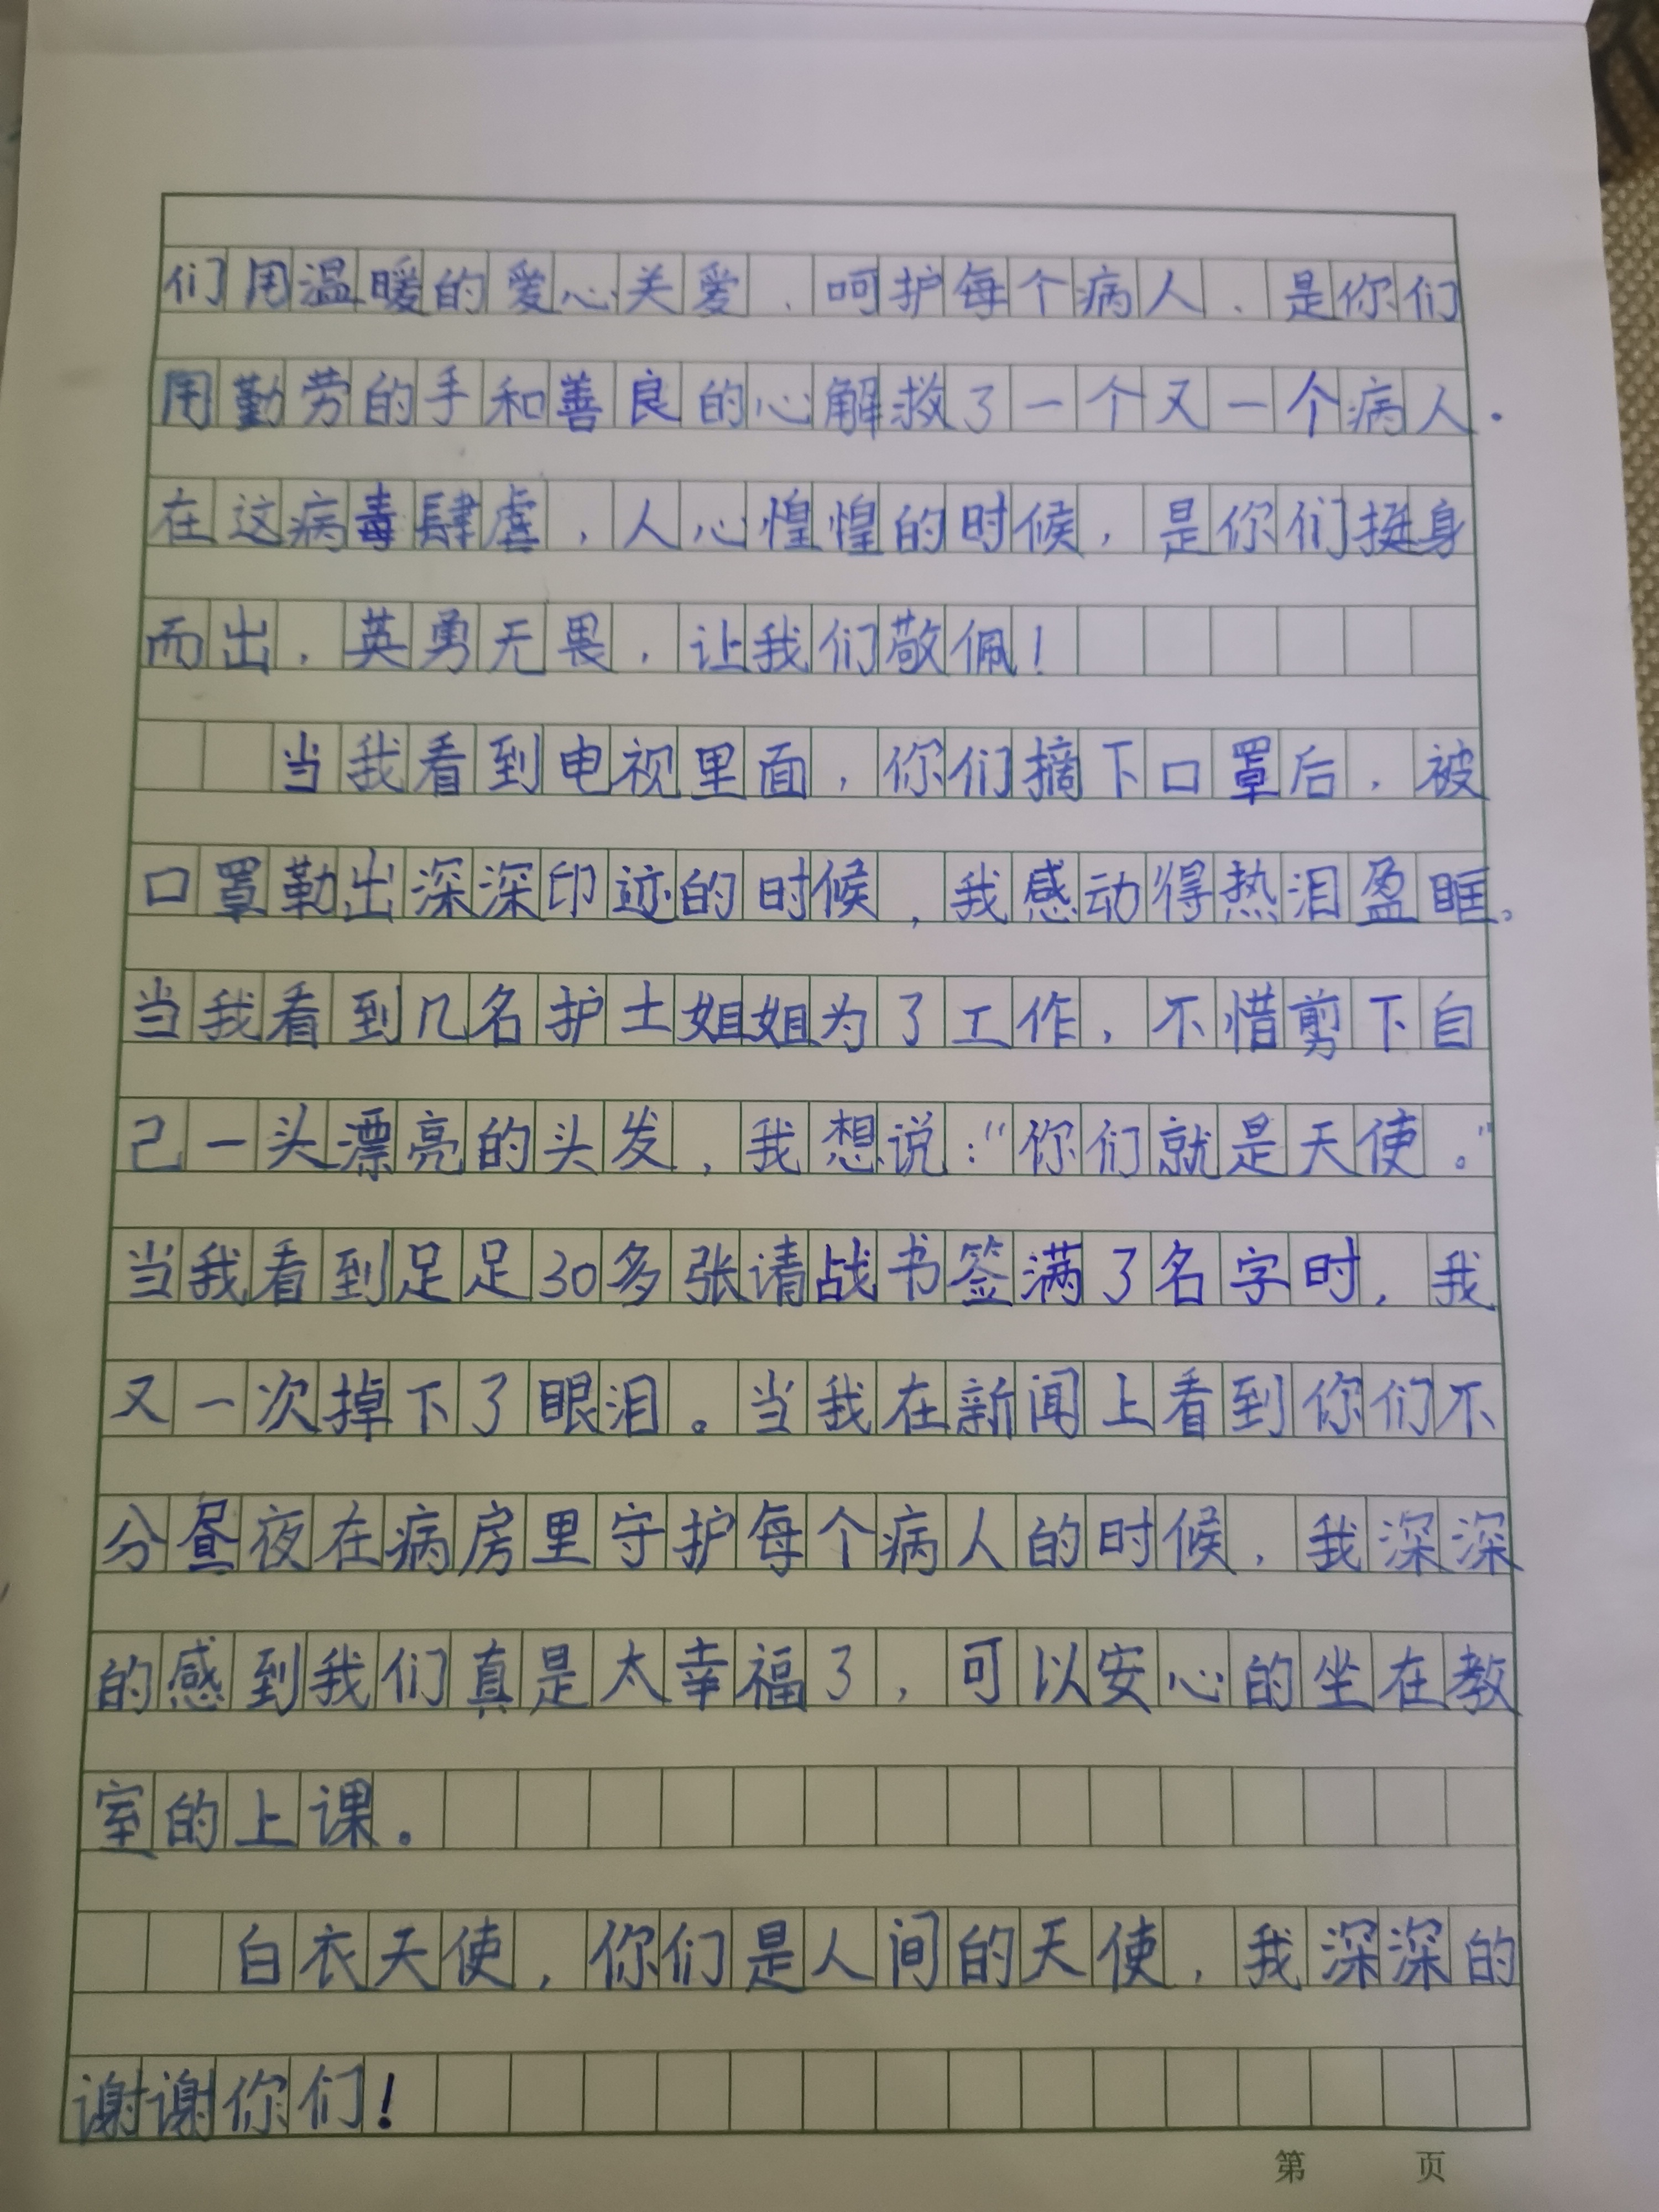 们用温暖的爱心关爱、呵护每个病人、是你们
用勤劳的手和善良的心解救了一个又一个病人.
在这病毒肆虐,人心惶惶的时候,是你们挺身
而出,英勇无畏,让我们敬佩!
当我看到电视里面,你们摘下口罩后,被
口罩勒出深深印迹的时候,我感动得热泪盈眶。
当我看到几名护士姐姐为了工作,不惜剪下自
己一头漂亮的头发,我想说:“你们就是天使。”
当我看到足足30多张请战书签满了名字时,我
又一次掉下了眼泪。当我在新闻上看到你们不
分昼夜在病房里守护每个病人的时候,我深深
的感到我们真是太幸福了,可以安心的坐在教
室的上课。
白衣天使,你们是人间的天使,我深深的
谢谢你们!
第 页